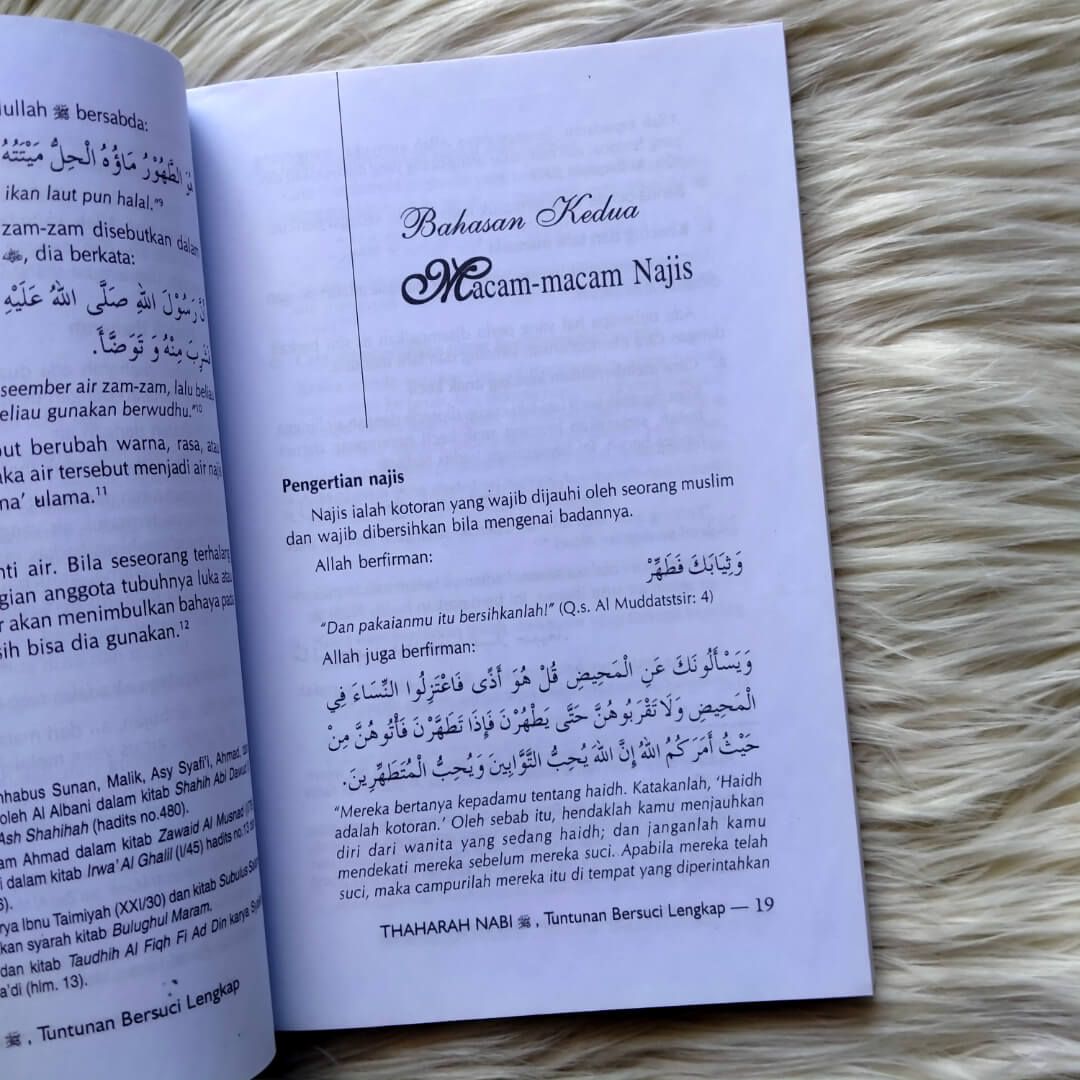 bersabda:
الطَّهُوْرُ مَاؤُهُ الْحِلُّ مَيْتَتُهُ
ikan laut pun halal."⁹
zam-zam disebutkan dalam
ﷺ, dia berkata:
رَسُوْلَ اللهِ صَلَّى اللهُ عَلَيْهِ
مِنْهُ وَ تَوَضَّأَ.
seember air zam-zam, lalu beliau
beliau gunakan berwudhu."¹⁰
berubah warna, rasa, atau
air tersebut menjadi air najis
ulama.¹¹
air. Bila seseorang terhalang
anggota tubuhnya luka atau
akan menimbulkan bahaya pada
bisa dia gunakan.¹²
Sunan, Malik, Asy Syafi'i, Ahmad, dan
oleh Al Albani dalam kitab Shahih Abi Dawud
Ash Shahihah (hadits no.480).
Ahmad dalam kitab Zawaid Al Musnad
dalam kitab Irwa' Al Ghalil (I/45) hadits no.13
Ibnu Taimiyah (XXI/30) dan kitab Subulus
syarah kitab Bulughul Maram.
dan kitab Taudhih Al Fiqh Fi Ad Din karya
(hlm. 13).
ﷺ, Tuntunan Bersuci Lengkap
Bahasan Kedua
Macam-macam Najis
Pengertian najis
Najis ialah kotoran yang wajib dijauhi oleh seorang muslim
dan wajib dibersihkan bila mengenai badannya.
Allah berfirman:
وَثِيَابَكَ فَطَهِّرْ
"Dan pakaianmu itu bersihkanlah!" (Q.s. Al Muddatstsir: 4)
Allah juga berfirman:
وَيَسْأَلُونَكَ عَنِ الْمَحِيضِ قُلْ هُوَ أَذًى فَاعْتَزِلُوا النِّسَاءَ فِي
الْمَحِيضِ وَلَا تَقْرَبُوهُنَّ حَتَّى يَطْهُرْنَ فَإِذَا تَطَهَّرْنَ فَأْتُوهُنَّ مِنْ
حَيْثُ أَمَرَكُمُ اللهُ إِنَّ اللهَ يُحِبُّ التَّوَّابِينَ وَيُحِبُّ الْمُتَطَهِّرِينَ.
"Mereka bertanya kepadamu tentang haidh. Katakanlah, 'Haidh
adalah kotoran.' Oleh sebab itu, hendaklah kamu menjauhkan
diri dari wanita yang sedang haidh; dan janganlah kamu
mendekati mereka sebelum mereka suci. Apabila mereka telah
suci, maka campurilah mereka itu di tempat yang diperintahkan
THAHARAH NABI ﷺ, Tuntunan Bersuci Lengkap — 19